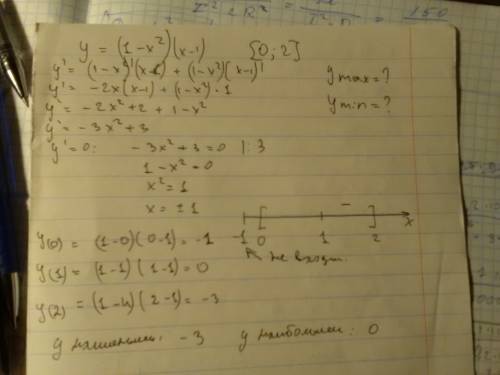 y = (1-x²)(x-1) [0; 2]
y' = (1-x²)'(x-1) + (1-x²)(x-1)'
y max = ?
y' = -2x(x-1) + (1-x²)·1
y min = ?
y' = -2x²+2 + 1-x²
y' = -3x²+3
y' = 0: -3x²+3=0 |:3
1-x²=0
x²=1
x = ±1
-
-1 0 1 2 x
не входит
y(0) = (1-0)(0-1) = -1
y(1) = (1-1)(1-1) = 0
y(2) = (1-4)(2-1) = -3
y наименьш: -3 y наибольш: 0
150